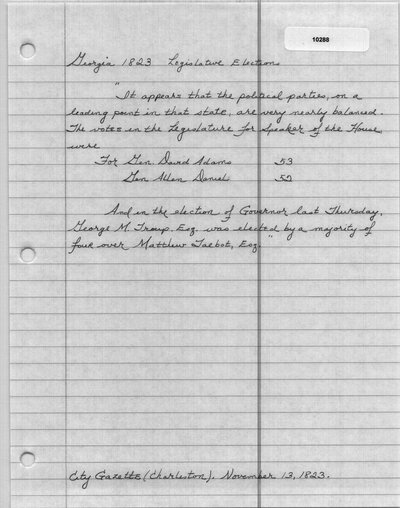 10288
Georgia 1823 Legislative Elections
"It appears that the political parties, on a
leading point in that state, are very nearly balanced.
The votes in the Legislature for Speaker of the House,
were
For Gen. David Adams 53
Gen. Allen Daniel 52
And in the election of Governor last Thursday,
George M. Troup, Esq. was elected by a majority of
four over Matthew Talbot, Esq."
City Gazette (Charleston). November 13, 1823.